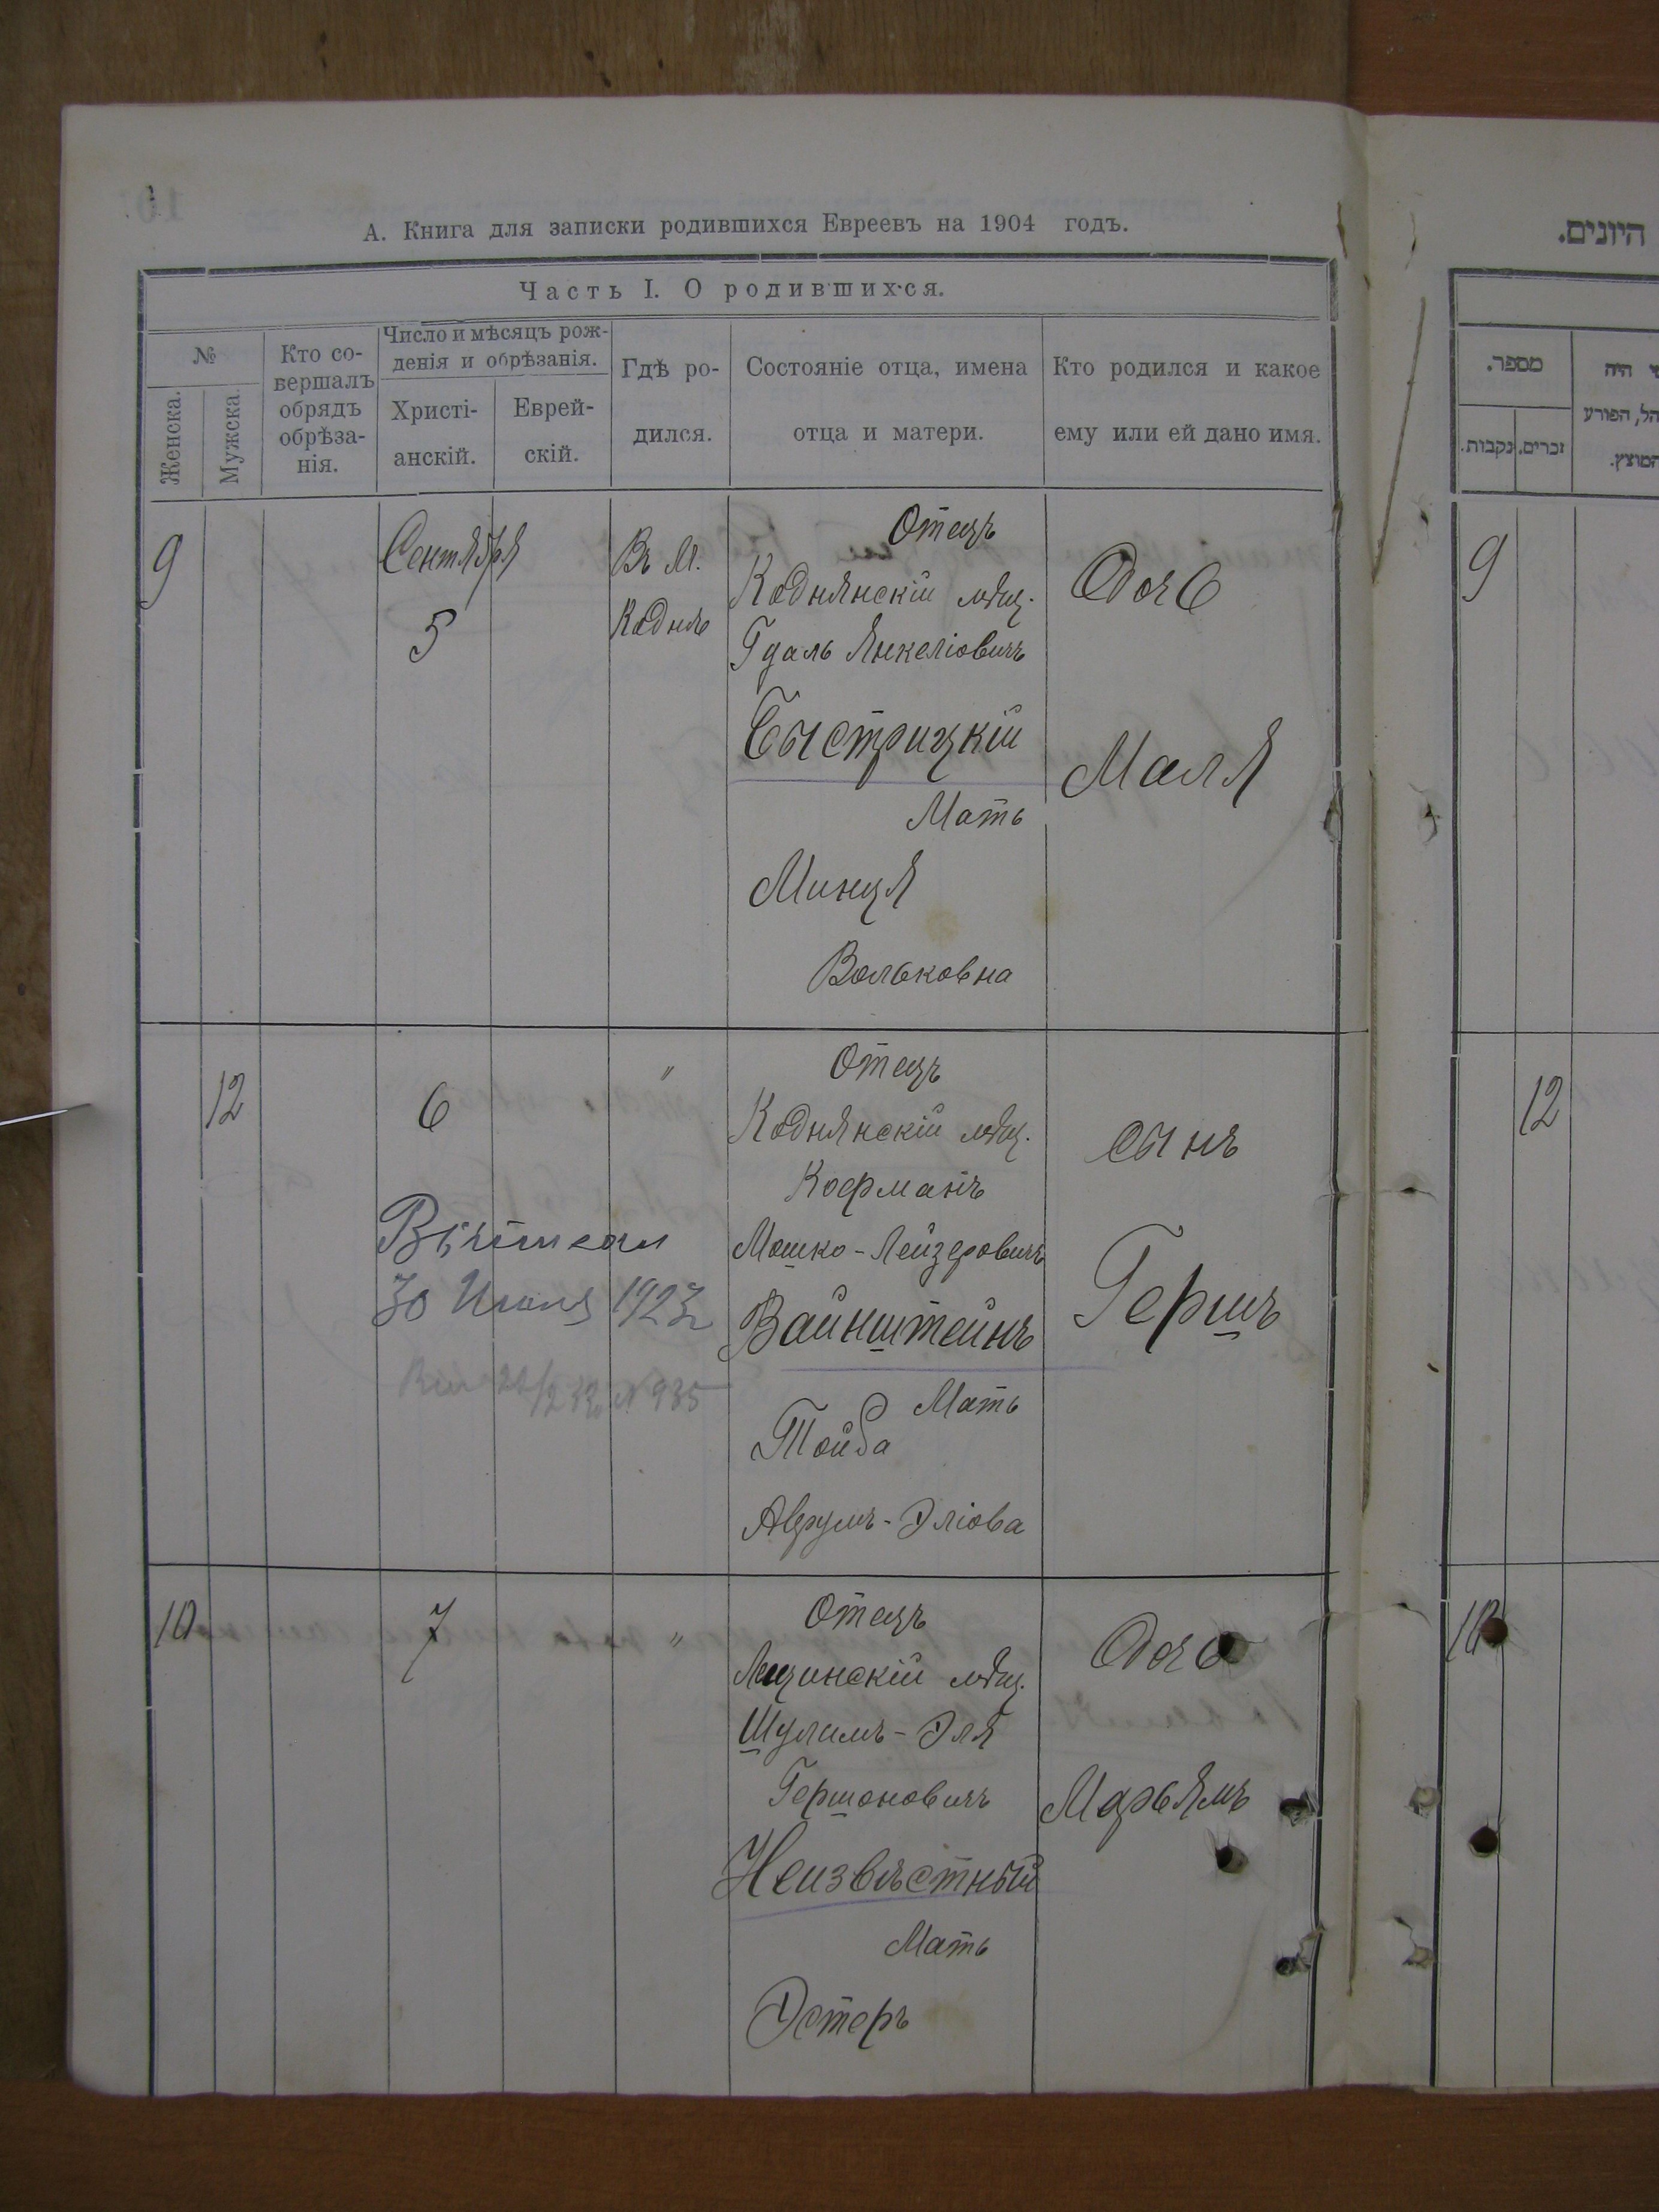 А. Книга для записки родившихся Евреевъ на 1904 годъ.
Часть I. О родившихся.
№
Женска.
Мужска.
Кто со-
вершалъ
обрядъ
обрѣза-
нія.
Число и мѣсяцъ рож-
денія и обрѣзанія.
Христі-
анскій.
Еврей-
скій.
Гдѣ ро-
дился.
Состояніе отца, имена
отца и матери.
Кто родился и какое
ему или ей дано имя.
9
Сентября
5
Въ М.
Кодня
Отецъ
Коднянскій мѣщ.
Гдаль Янкеліовичъ
Быстрицкій
Мать
Минця
Вольковна
Дочь
Маля
12
6
"
Отецъ
Коднянскій мѣщ.
Кофманъ
Мошко-Лейзеровичъ
Вайнштейнъ
Мать
Тойба
Аврумъ-Эліова
сынъ
Гершъ
30 1923
№ 935
10
7
"
Отецъ
мѣщ.
Шулимъ-Эля
Гершоновичъ
Неизвѣстный
Мать
Эстеръ
Дочь
Марьямъ
היונים.
מספר.
זכרים.
נקבות.
היה
הפורע
המוצץ.
9
12
10